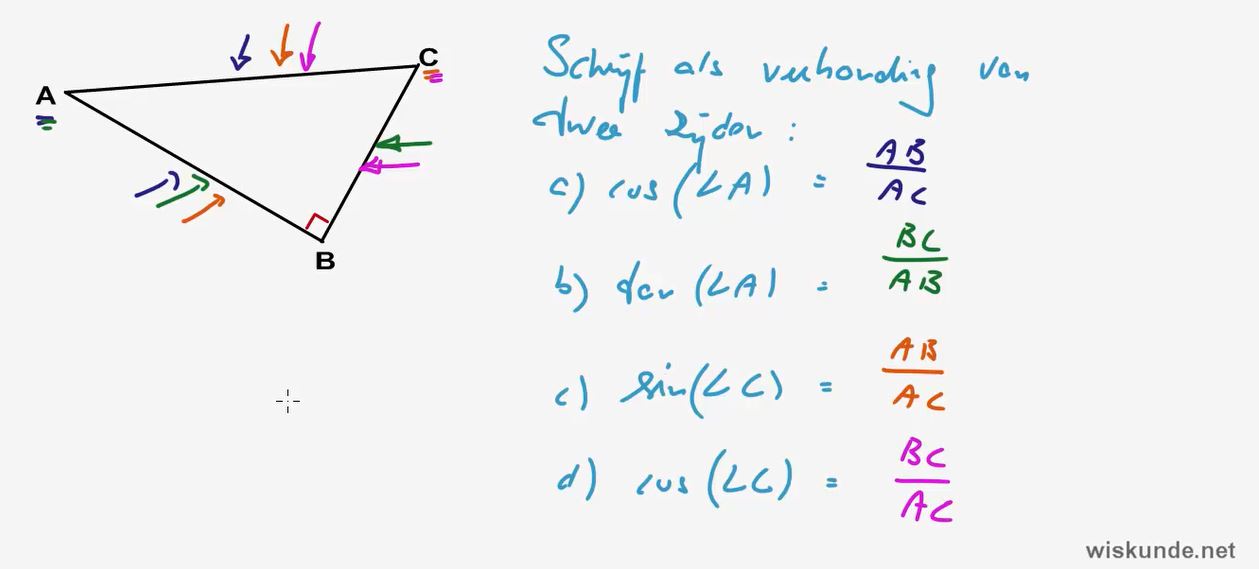 A
C
B
Schrijf als verhouding van
twee zijden :
a) cos(∠A) = AB
AC
b) tan(∠A) = BC
AB
c) sin(∠C) = AB
AC
d) cos(∠C) = BC
AC
wiskunde.net